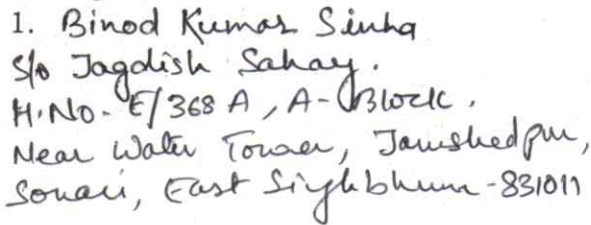 1. Binod Kumar Sinha
S/o Jagdish Sahay.
H.No- E/368 A, A-Block.
Near Water Tower, Jamshedpur,
Sonari, East Singhbhum-831011